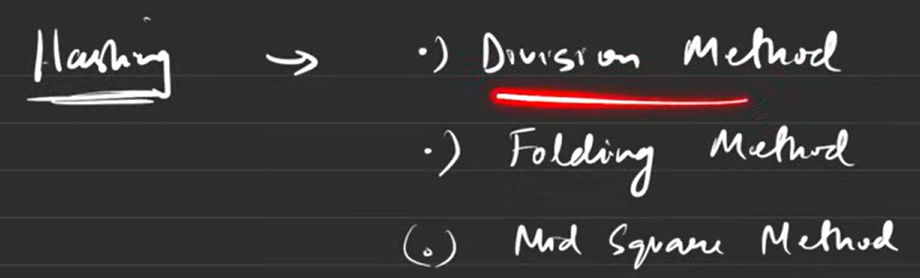 Hashing → •) Division Method
•) Folding Method
(•) Mid Square Method